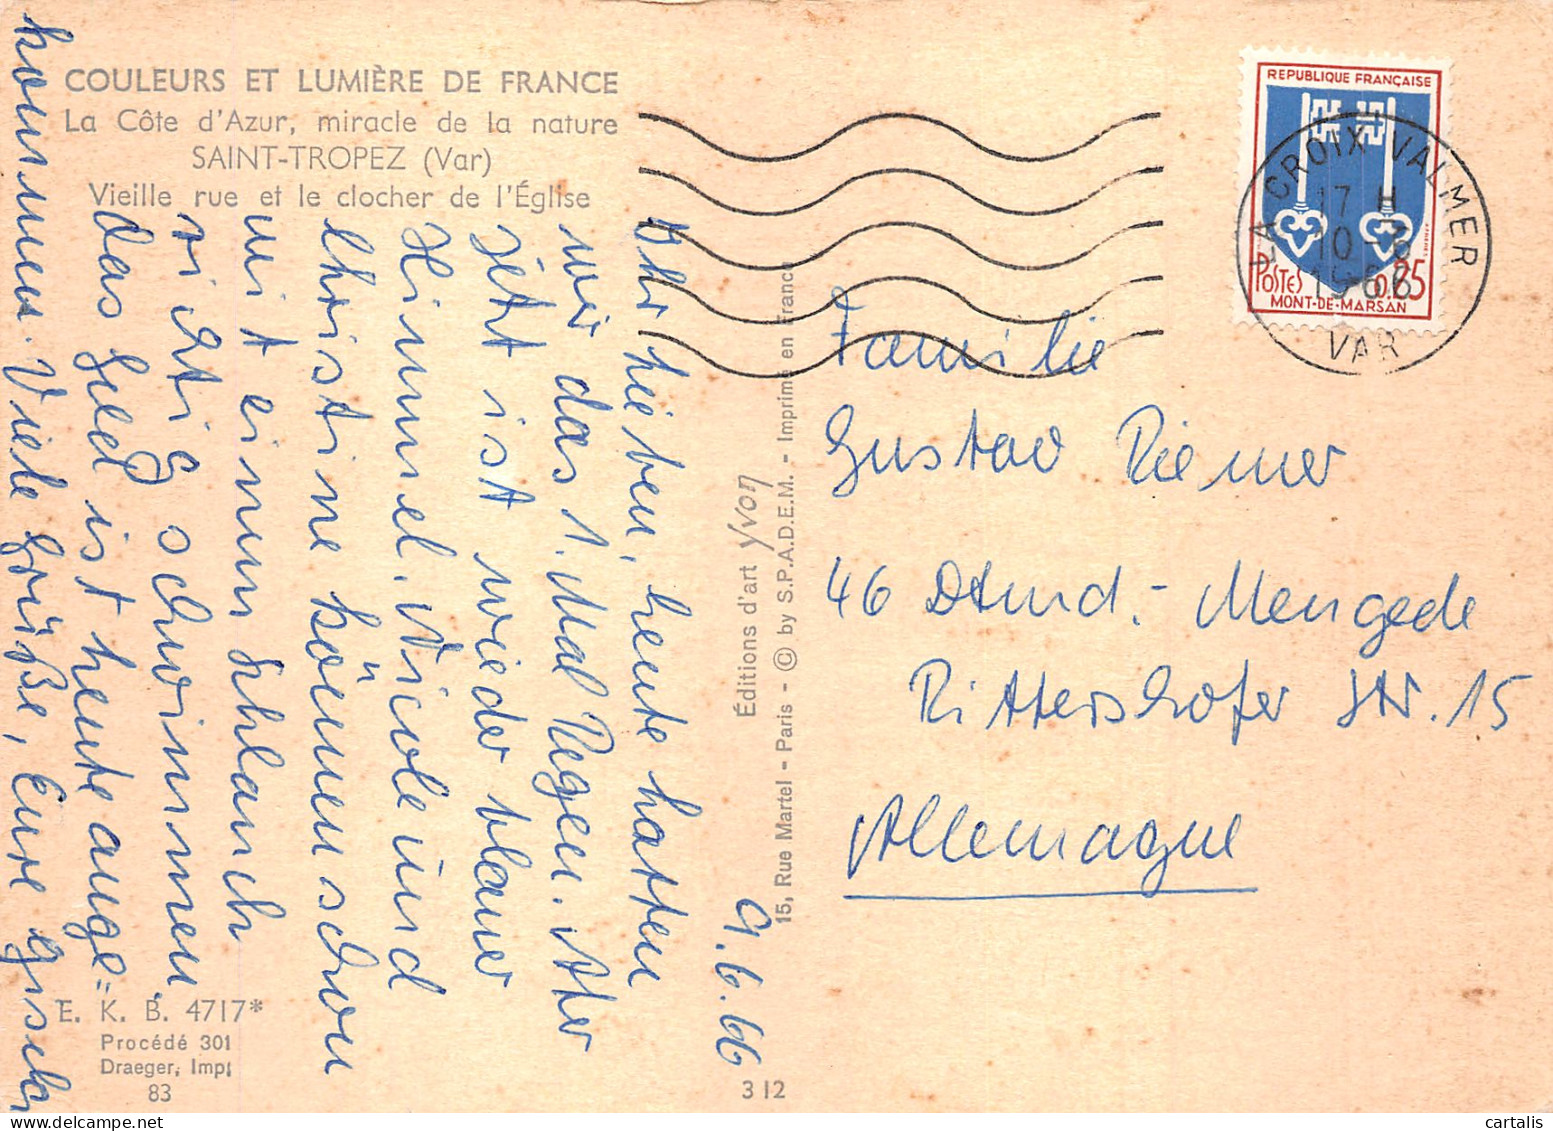 COULEURS ET LUMIÈRE DE FRANCE
La Côte d'Azur, miracle de la nature
SAINT-TROPEZ (Var)
Vieille rue et le clocher de l'Église
9.6.66
Ihr lieben, heute hatten
wir das 1. Mal Regen. Aber
jetzt ist wieder blauer
Himmel. Nicole und
Christine können schon
mit einem Schlauch
richtig schwimmen.
das Geld ist heute ange=
kommen. Viele Grüße, Eure
E. K. B. 4717*
Procédé 301
Draeger, Imp.
83
Éditions d'art Yvon
15, Rue Martel - Paris - © by S.P.A.D.E.M. - Imprimé en France
312
REPUBLIQUE FRANÇAISE
POSTES 0,25
MONT-DE-MARSAN
LA CROIX VALMER
17 H
10-6
1966
VAR
Familie
Gustav Riemer
46 Dtmd.- Mengede
Rittershofer Str. 15
Allemagne